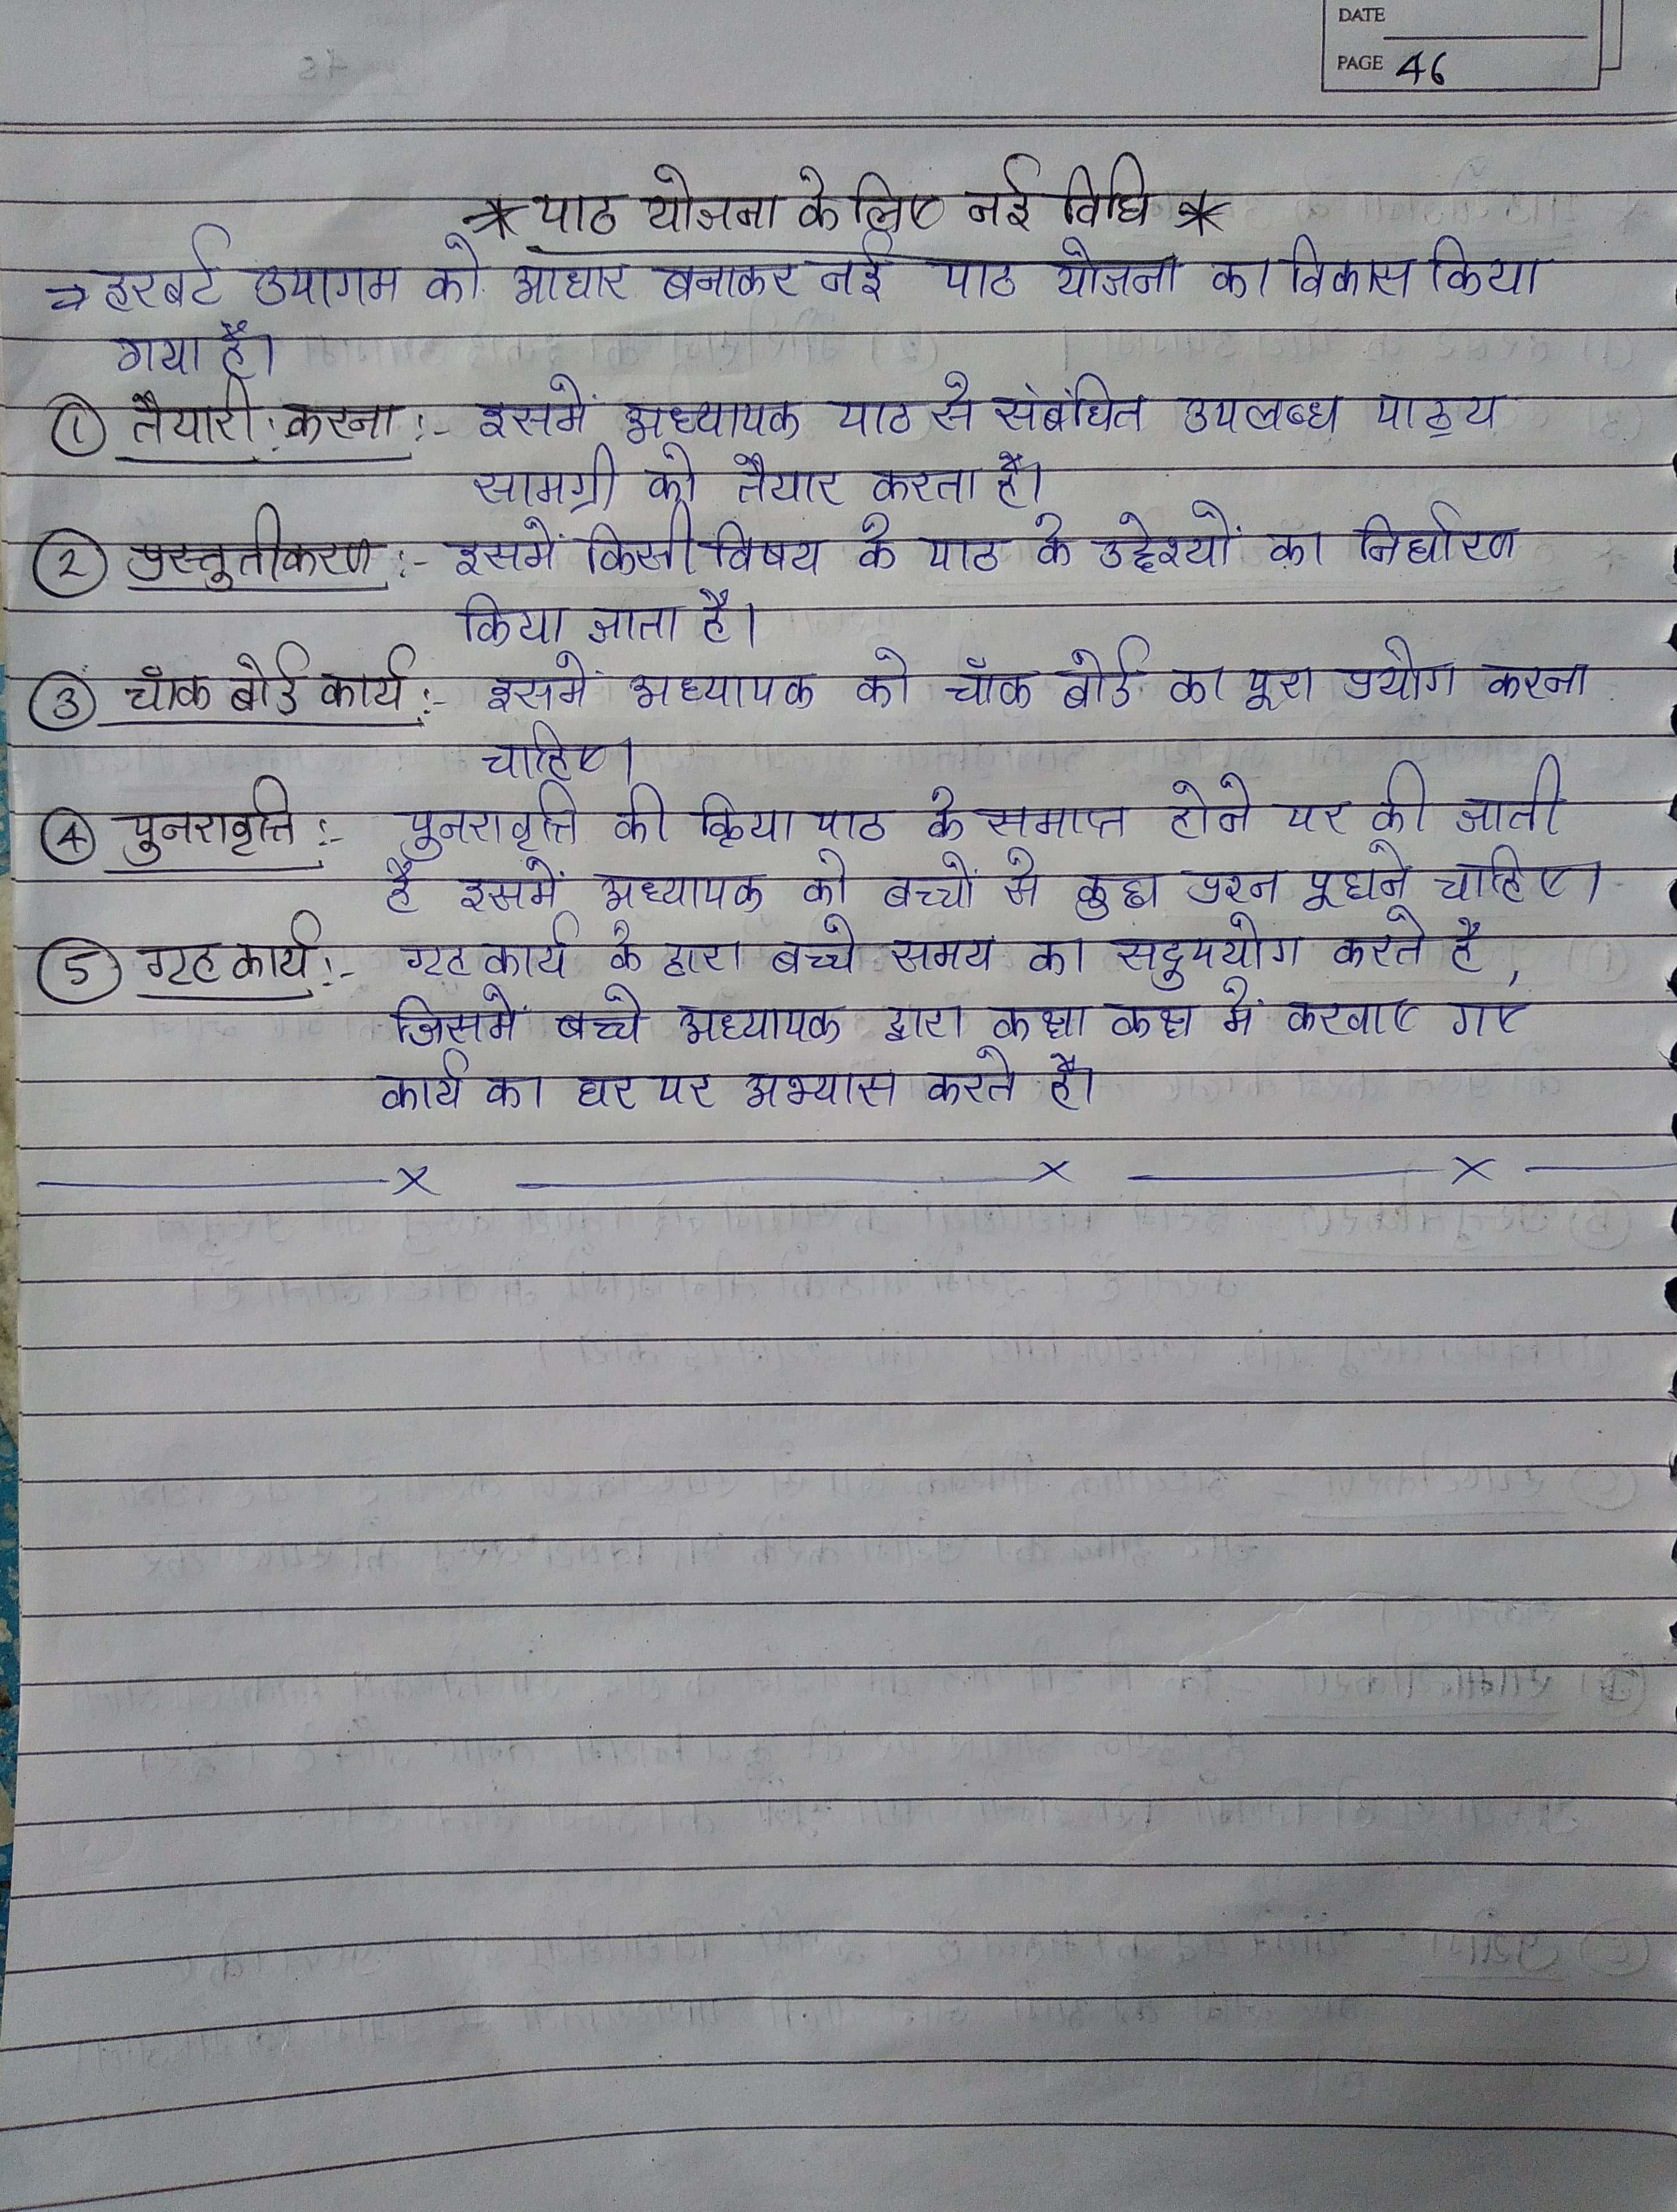 DATE
PAGE 46
* पाठ योजना के लिए नई विधि *
→ हरबर्ट उपागम को आधार बनाकर नई पाठ योजना का विकास किया
गया है।
① तैयारी करना :- इसमें अध्यापक पाठ से संबंधित उपलब्ध पाठ्य
सामग्री को तैयार करता है।
② प्रस्तुतीकरण :- इसमें किसी विषय के पाठ के उद्देश्यों का निर्धारण
किया जाता है।
③ चॉक बोर्ड कार्य :- इसमें अध्यापक को चॉक बोर्ड का पूरा प्रयोग करना
चाहिए।
④ पुनरावृत्ति :- पुनरावृत्ति की क्रिया पाठ के समाप्त होने पर की जाती
है इसमें अध्यापक को बच्चों से कुछ प्रश्न पूछने चाहिए।
⑤ गृहकार्य :- गृहकार्य के द्वारा बच्चे समय का सदुपयोग करते है,
जिसमें बच्चे अध्यापक द्वारा कक्षा कक्ष में करवाए गए
कार्य का घर पर अभ्यास करते है।
x x x